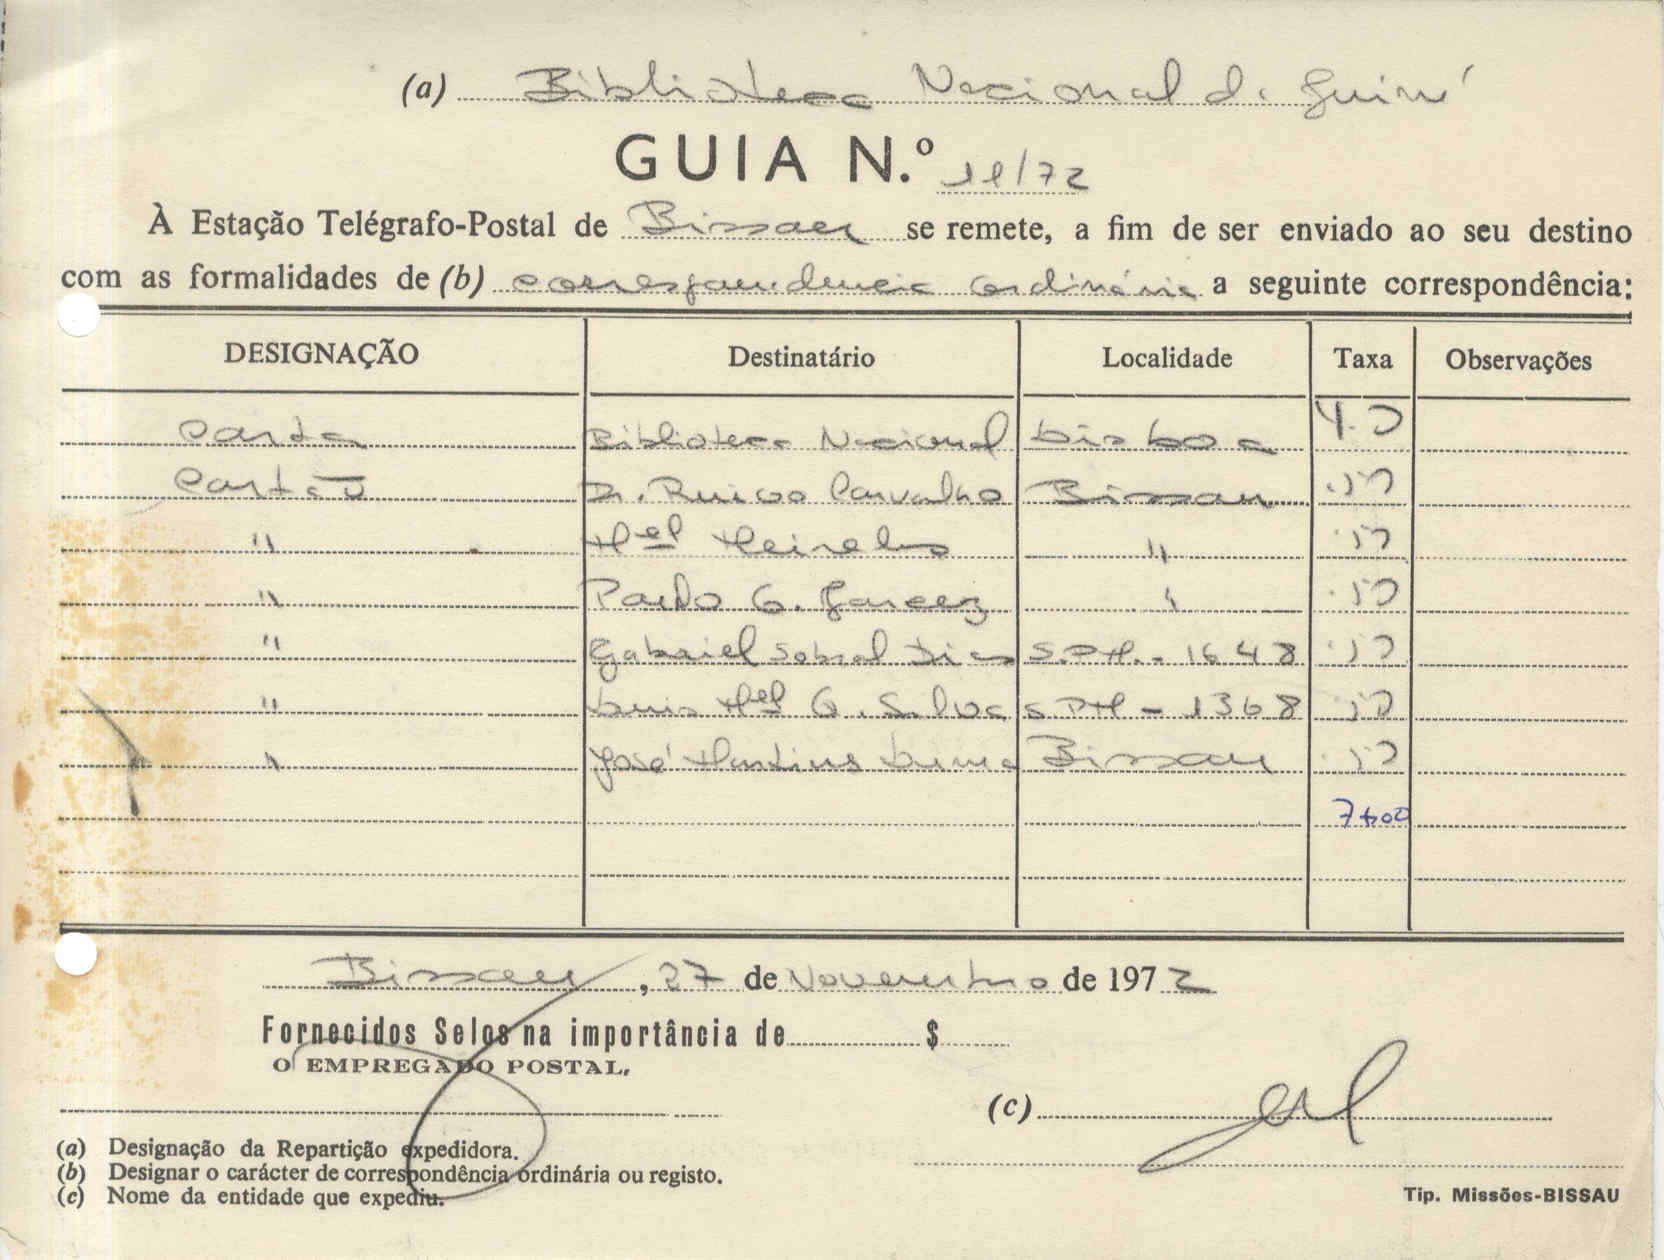 (a) Biblioteca Nacional da Guiné
GUIA N.º 11/72
À Estação Telégrafo-Postal de Bissau se remete, a fim de ser enviado ao seu destino
com as formalidades de (b) correspondência ordinária a seguinte correspondência:
DESIGNAÇÃO Destinatário Localidade Taxa Observações
Carta Biblioteca Nacional Lisboa
Cartão Dr. Carvalho Bissau
" Mel Meireles "
" Paulo G. Garcez "
" Gabriel Sobral Dias S.P.M. - 1648
" Luis Mel G. Silva S.P.M - 1368
" José Martins Bissau
Bissau, 27 de Novembro de 1972
Fornecidos Selos na importância de $
O EMPREGADO POSTAL,
(c)
(a) Designação da Repartição expedidora.
(b) Designar o carácter de correspondência ordinária ou registo.
(c) Nome da entidade que expediu.
Tip. Missões-BISSAU